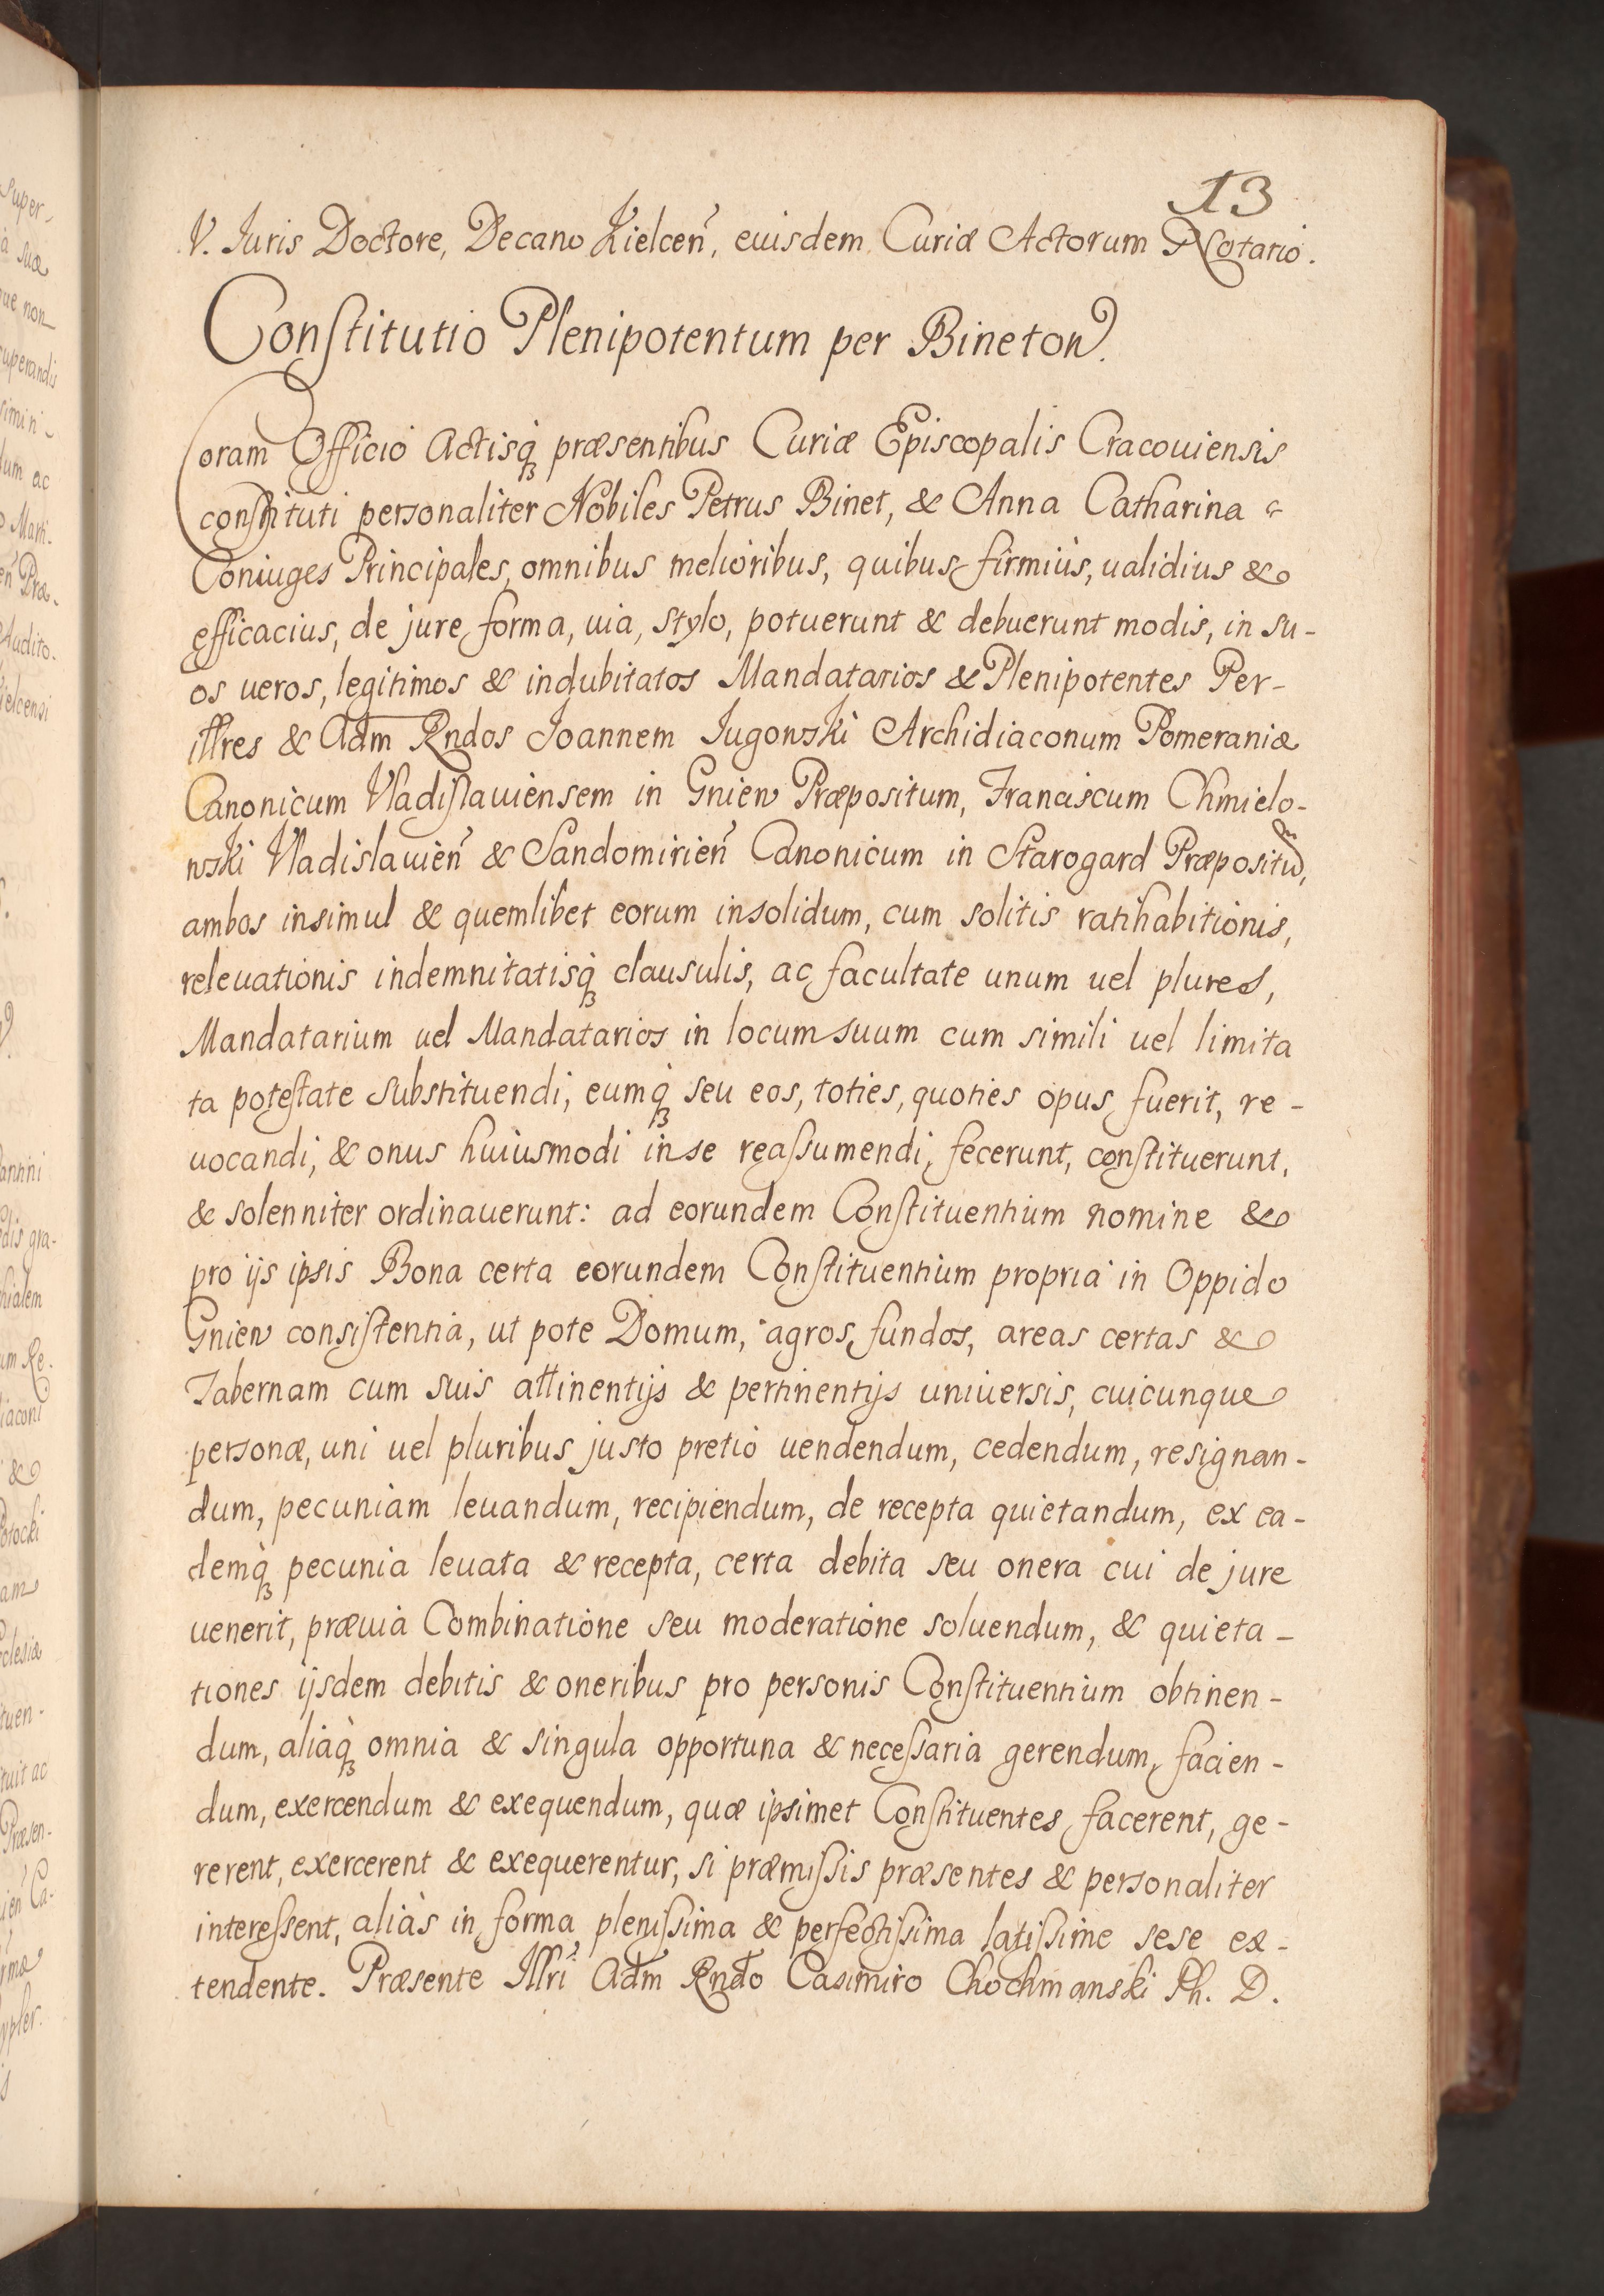 13
V. Juris Doctore, Decano Kielceñ, euisdem Curiæ Actorum Notario.
Constitutio Plenipotentum per Bineton.
Coram Officio Actisq₃ præsentibus Curiæ Episcopalis Cracouiensis
constituti personaliter Nobiles Petrus Binet, & Anna Catharina
Coniuges Principales, omnibus melioribus, quibus firmiùs, ualidius &
efficacius, de jure, forma, uia, stylo, potuerunt & debuerunt modis, in su-
os ueros, legitimos & indubitatos Mandatarios & Plenipotentes Per-
illres & Adm Rndos Joannem Jugowski Archidiaconum Pomeraniæ
Canonicum Vladislauiensem in Gniew Præpositum, Franciscum Chmielo-
wski Vladislauieñ & Sandomirieñ Canonicum in Starogard Præpositum,
ambos insimul & quemlibet eorum insolidum, cum solitis ratihabitionis,
releuationis indemnitatisq₃ clausulis, ac facultate unum uel plures,
Mandatarium uel Mandatarios in locum suum cum simili uel limita
ta potestate substituendi, eumq₃ seu eos, toties, quoties opus fuerit, re-
uocandi, & onus huiusmodi in se reassumendi, fecerunt, constituerunt,
& solenniter ordinauerunt: ad eorundem Constituentium nomine &
pro ijs ipsis Bona certa eorundem Constituentium propria in Oppido
Gniew consistentia, ut pote Domum, agros, fundos, areas certas &
Tabernam cum suis attinentijs & pertinentijs uniuersis, cuicunque
personæ, uni uel pluribus justo pretio uendendum, cedendum, resignan-
dum, pecuniam leuandum, recipiendum, de recepta quietandum, ex ea-
demq₃ pecunia leuata & recepta, certa debita seu onera cui de jure
uenerit, præuia Combinatione seu moderatione soluendum, & quieta-
tiones ijsdem debitis & oneribus pro personis Constituentium obtinen-
dum, aliaq₃ omnia & singula opportuna & necessaria gerendum, facien-
dum, exercendum & exequendum, quæ ipsimet Constituentes facerent, ge-
rerent, exercerent & exequerentur, si præmissis præsentes & personaliter
interessent, aliàs in forma plenissima & perfectissima latissime sese ex-
tendente. Præsente Illri Adm Rndo Casimiro Chochmanski Ph. D.